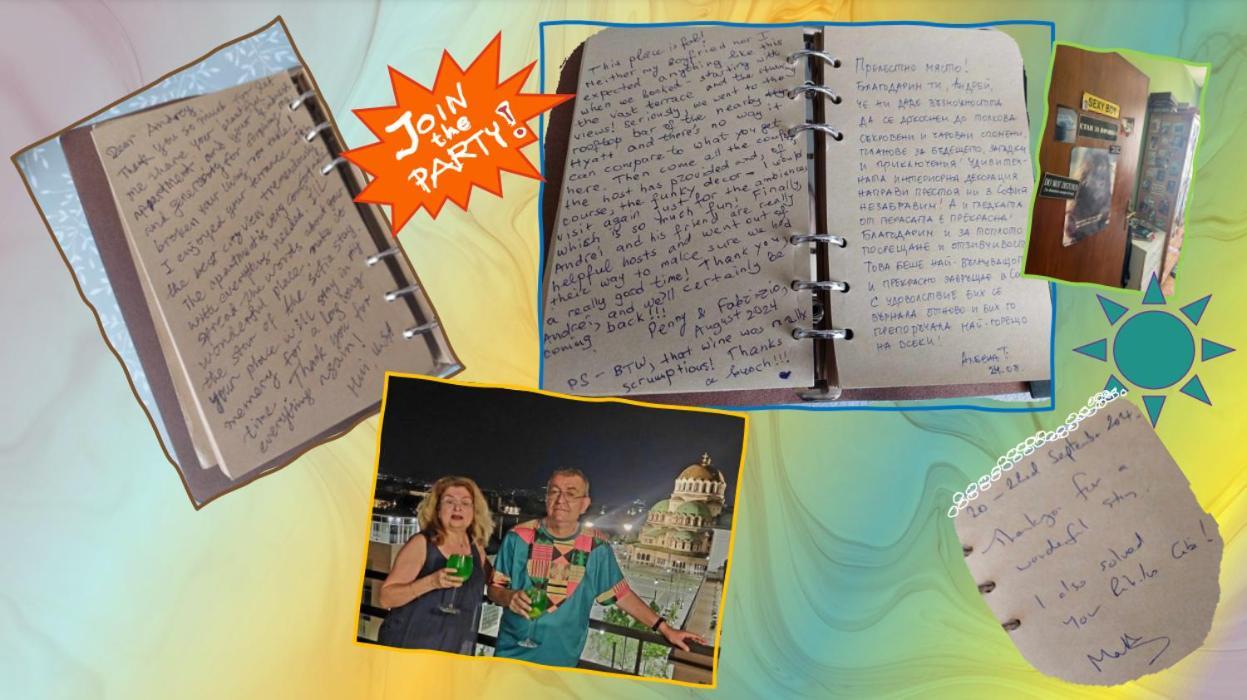 Dear Andrey,
Thank you so much for
me share your
apartment and your
and generosity for
I enjoyed your
the best city view
The apartment is very
with everything needed. I will
spread the words about it
wonderful place
the star of the
your place will stay in my
memory for long long
time. Thank you for
everything again!
JOIN
the
PARTY!
This place is fab!
Neither my boyfriend nor I
expected anything like this
when we booked - starting with
the vast terrace and the
views! Seriously, we went to the
rooftop bar of the nearby
Hyatt and there's no way it
can compare to what you get
here. Then come all the comfy
the host has provided and, of
course, the funky decor - I would
visit again just for the ambience
which is so much fun! Finally,
Andrei and his friend are really
helpful hosts and went out of
their way to make sure we had
a really good time! Thank you,
Andrei, and we'll certainly be
coming back!!!
Penny & Fabrizio,
August 2024
PS - BTW, that wine was really
scrumptious! Thanks
a bunch!!!
Прелестно място!
Благодарим ти, Андрей,
че ни даде възможността
да се докоснем до толкова
съкровени и чаровни спомени,
планове за бъдещето, загадки
и приключения! Удивител-
ната интериорна декорация
направи престоя ни в София
незабравим! А и гледката
от терасата е прекрасна!
Благодарим и за топлото
посрещане и отзивчивост
Това беше най-
и прекрасно
С удоволствие бих се
върнала отново и бих го
препоръчала най-горещо
на всеки!
24.08.
SEXY BOY
DO NOT DISTURB
20 - 22nd September 2024
Thankyou for a
wonderful stay.
I also solved
your Rubiks Cube!